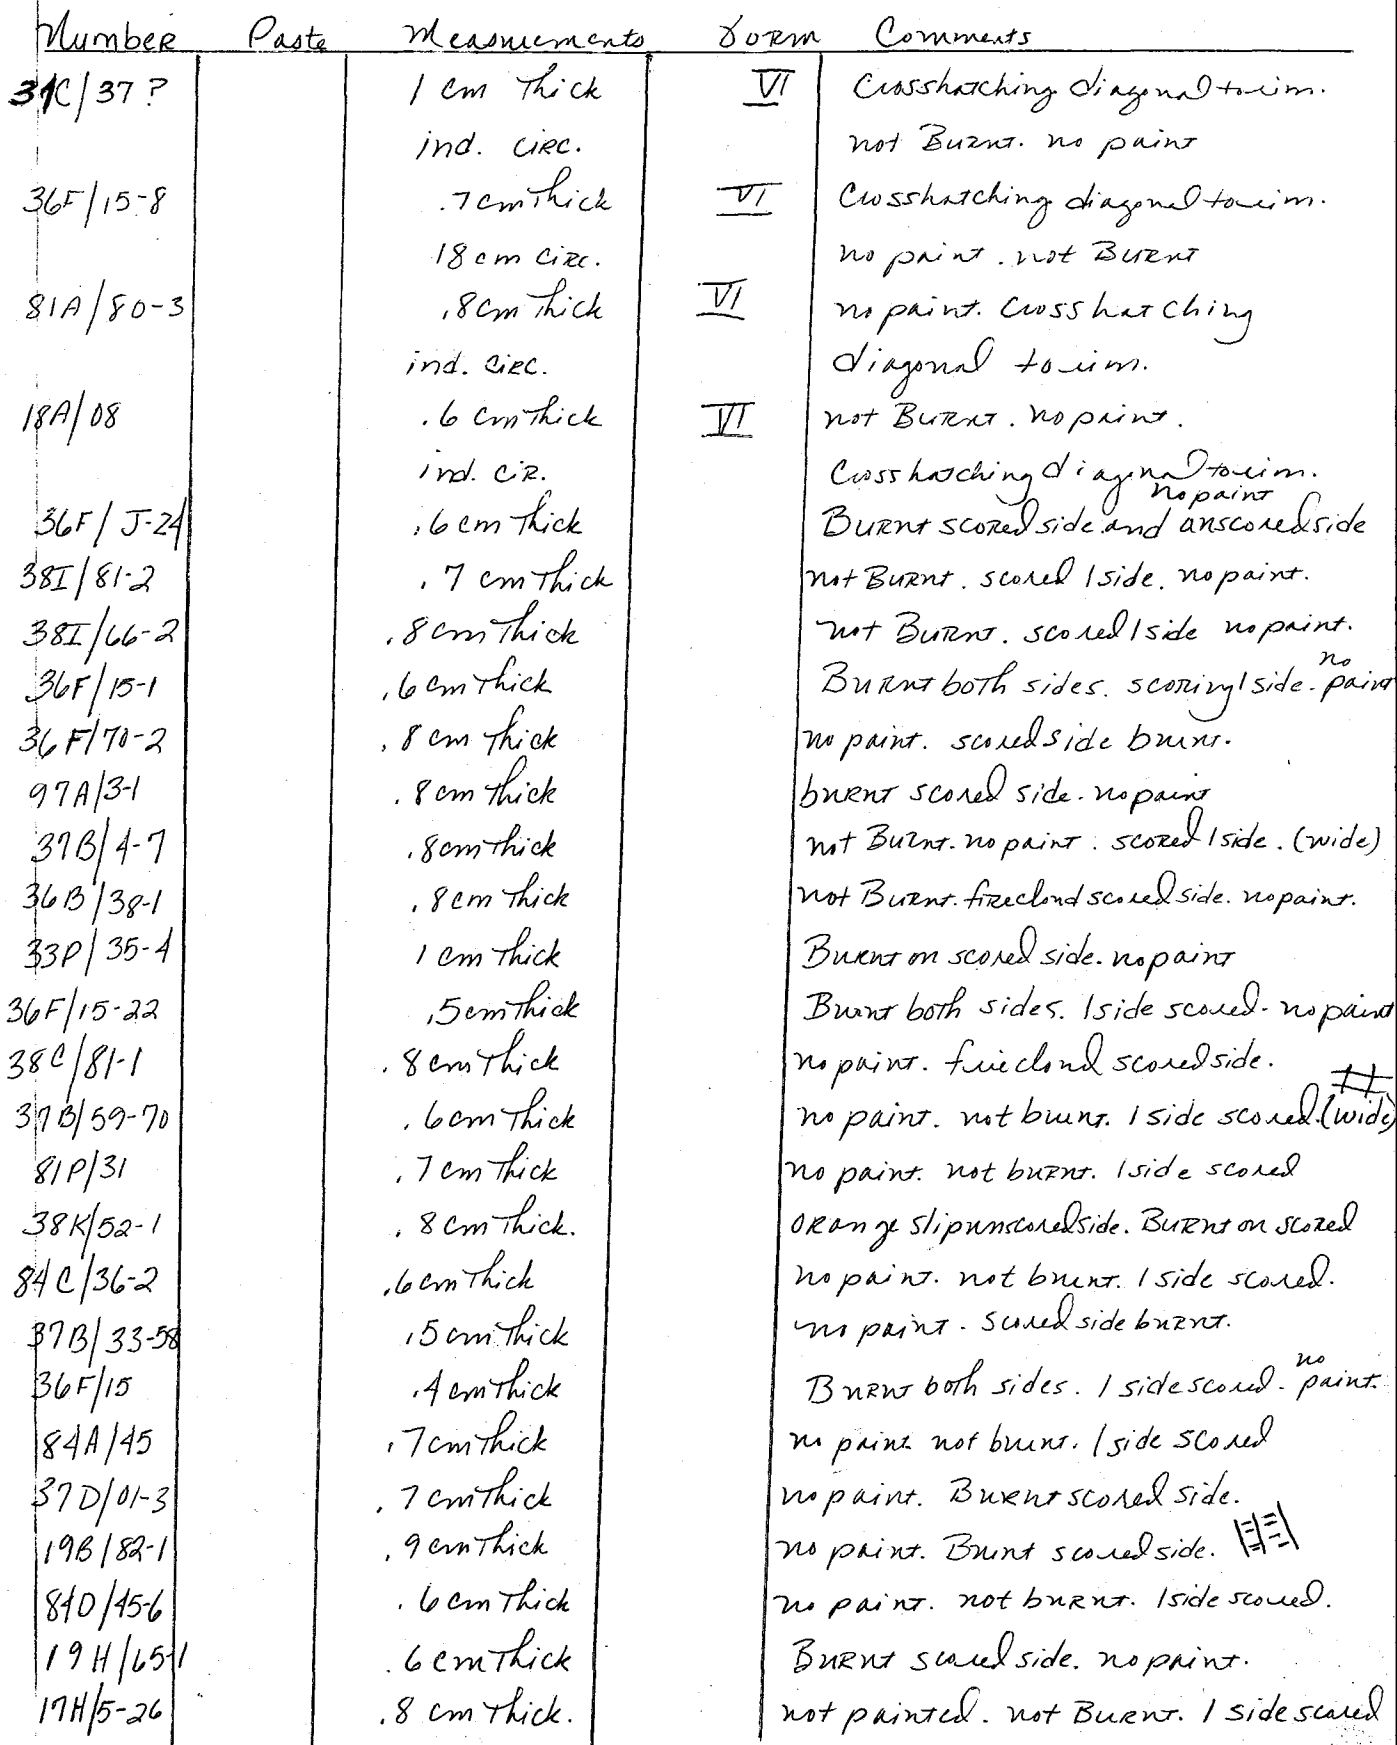 Number Paste Measurements Form Comments
31C/37 ? 1 cm Thick VI Crosshatching diagonal to rim.
ind. circ. not Burnt. no paint
36F/15-8 .7 cm Thick VI Crosshatching diagonal to rim.
18 cm circ. no paint. not Burnt
81A/80-3 .8 cm Thick VI no paint. Crosshatching
ind. circ. diagonal to rim.
18A/08 .6 cm Thick VI not Burnt. no paint.
ind. cir. Crosshatching diagonal to rim.
no paint
36F/J-24 .6 cm Thick Burnt scored side and unscored side
38I/81-2 .7 cm Thick not Burnt. scored 1 side. no paint.
38I/66-2 .8 cm Thick not Burnt. scored 1 side no paint.
36F/15-1 .6 cm Thick Burnt both sides. scoring 1 side. no paint
36F/70-2 .8 cm Thick no paint. scored side burnt.
97A/3-1 .8 cm Thick burnt scored side. no paint
37B/4-7 .8 cm Thick not Burnt. no paint. scored 1 side. (wide)
36B/38-1 .8 cm Thick not Burnt. firecloud scored side. no paint.
33P/35-4 1 cm Thick Burnt on scored side. no paint
36F/15-22 .5 cm Thick Burnt both sides. 1 side scored. no paint
38C/81-1 .8 cm Thick no paint. firecloud scored side.
37B/59-70 .6 cm Thick no paint. not burnt. 1 side scored. (wide)
81P/31 .7 cm Thick no paint. not burnt. 1 side scored
38K/52-1 .8 cm Thick. orange slip unscored side. Burnt on scored
84C/36-2 .6 cm Thick no paint. not burnt. 1 side scored.
37B/33-58 .5 cm Thick no paint. Scored side burnt.
36F/15 .4 cm Thick Burnt both sides. 1 side scored. no paint.
84A/45 .7 cm Thick no paint not burnt. 1 side scored
37D/01-3 .7 cm Thick no paint. Burnt scored side.
19B/82-1 .9 cm Thick no paint. Burnt scored side.
84D/45-6 .6 cm Thick no paint. not burnt. 1 side scored.
19H/65-1 .6 cm Thick Burnt scored side. no paint.
17H/5-26 .8 cm Thick. not painted. not Burnt. 1 side scored